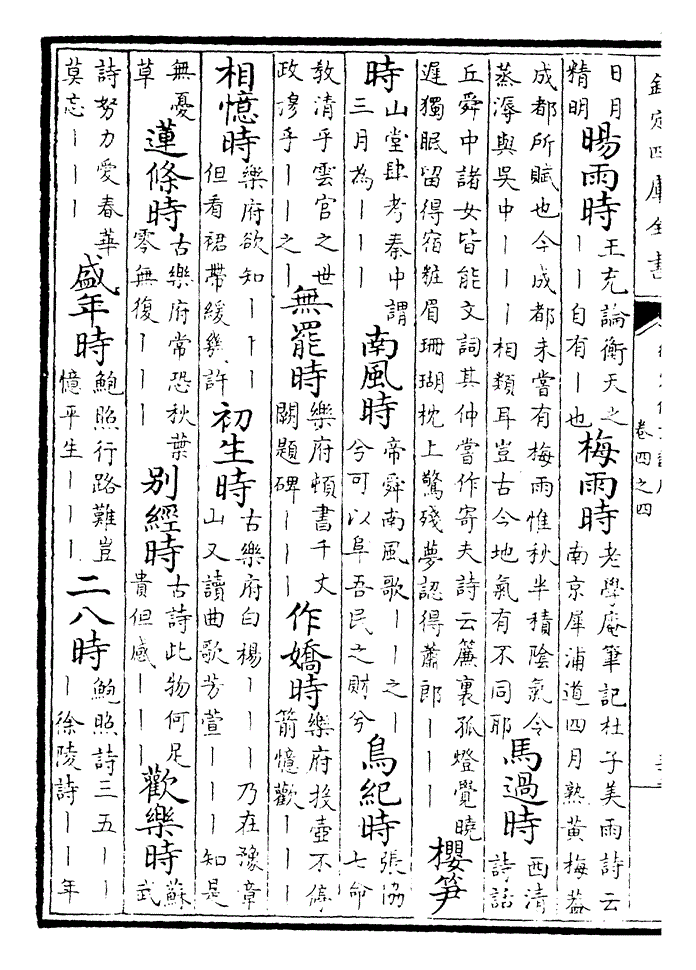 欽定四庫全書
卷四之四
日月精明 暘雨時 王充論衡天之丨丨自有丨也 梅雨時 老學庵筆記杜子美雨詩云南京犀浦道四月熟黄梅葢
成都所賦也今成都未嘗有梅雨惟秋半積陰氣令蒸溽與吳中丨丨丨相類耳豈古今地氣有不同耶 馬過時 西清詩話
丘舜中諸女皆能文詞其仲嘗作寄夫詩云簾裏孤燈覺曉遲獨眠留得宿粧眉珊瑚枕上驚殘夢認得蕭郎丨丨丨 櫻笋
時 山堂肆考秦中謂三月為丨丨丨 南風時 帝舜南風歌丨丨之丨兮可以阜吾民之財兮 鳥紀時 張協七命
教清乎雲官之世政穆乎丨丨之丨 無罷時 樂府頓書千丈闕題碑丨丨丨 作嬌時 樂府投壺不停箭憶歡丨丨丨
相憶時 樂府欲知丨丨丨但看裙帶緩幾許 初生時 古樂府白楊丨丨丨乃在豫章山又讀曲歌芳萱丨丨丨知是
無憂草 蓮條時 古樂府常恐秋葉零無復丨丨丨 別經時 古詩此物何足貴但感丨丨丨 歡樂時 蘇武
詩努力愛春華莫忘丨丨丨 盛年時 鮑照行路難豈憶平生丨丨丨 二八時 鮑照詩三五丨丨丨徐陵詩丨丨年